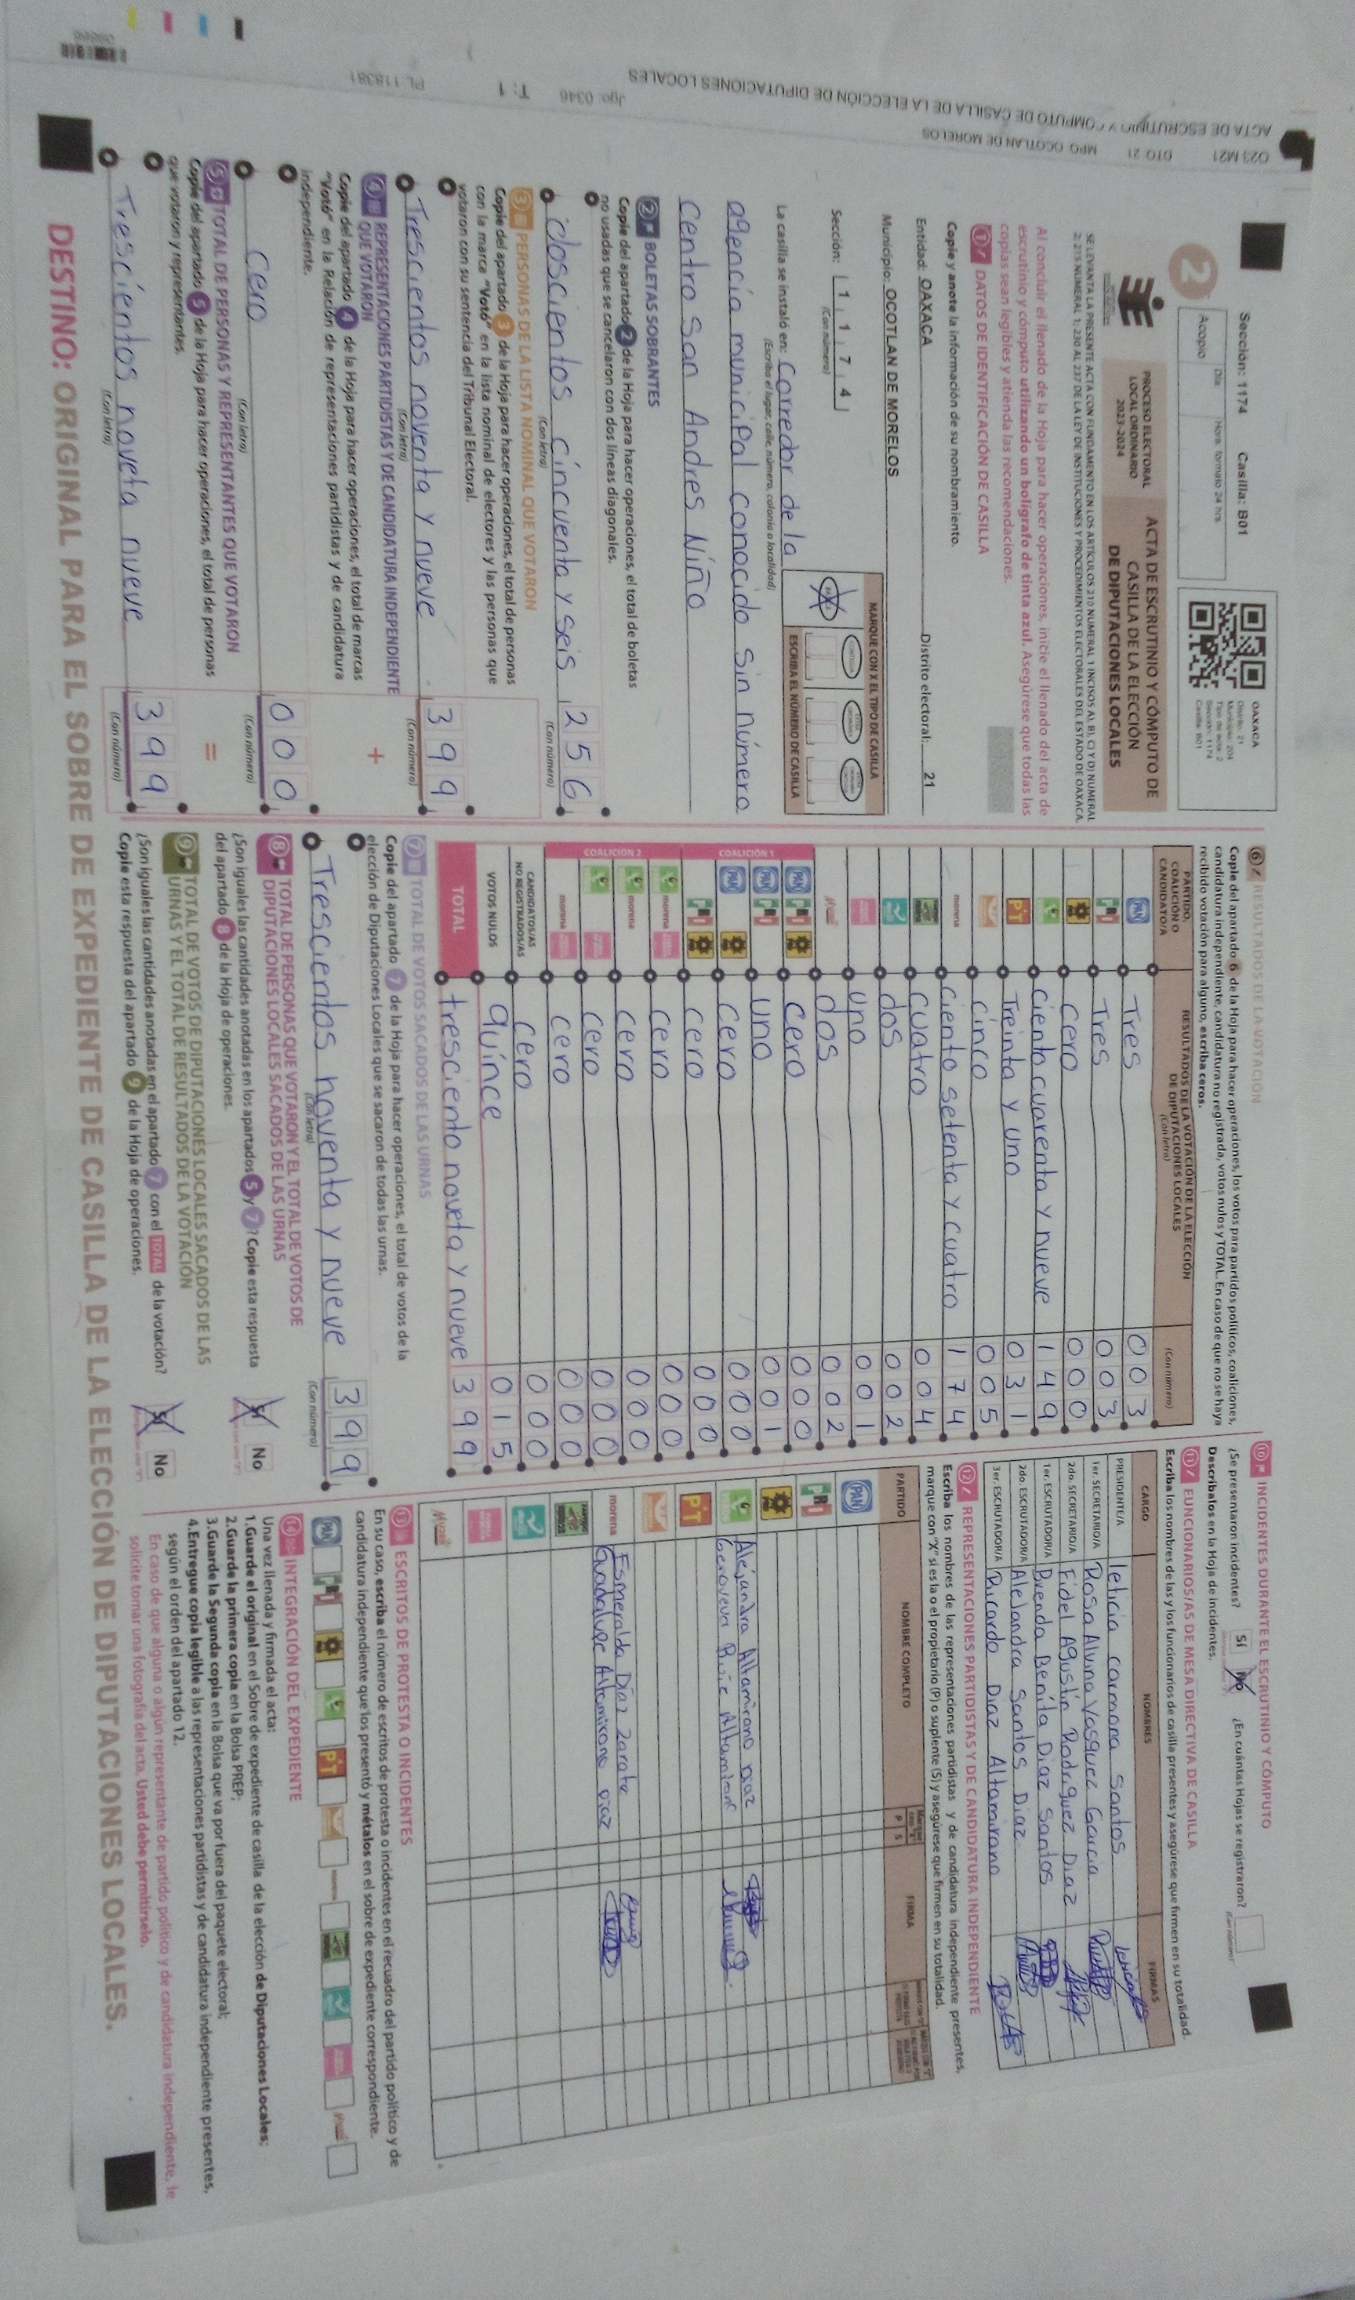 Sección: 1174 Casilla: B01
Día Hora: formato 24 hrs
2 Acopio
OAXACA
Distrito: 21
Municipio: 204
Tipo de acta: 2
Sección: 1174
Casilla: B01
PROCESO ELECTORAL
LOCAL ORDINARIO
2023-2024
ACTA DE ESCRUTINIO Y CÓMPUTO DE
CASILLA DE LA ELECCIÓN
DE DIPUTACIONES LOCALES
SE LEVANTA LA PRESENTE ACTA CON FUNDAMENTO EN LOS ARTÍCULOS 210 NUMERAL 1 INCISOS A), B), C) Y D) NUMERAL
2; 215 NUMERAL 1; 230 AL 237 DE LA LEY DE INSTITUCIONES Y PROCEDIMIENTOS ELECTORALES DEL ESTADO DE OAXACA.
Al concluir el llenado de la Hoja para hacer operaciones, inicie el llenado del acta de
escrutinio y cómputo utilizando un bolígrafo de tinta azul. Asegúrese que todas las
copias sean legibles y atienda las recomendaciones.
1 DATOS DE IDENTIFICACIÓN DE CASILLA
Copie y anote la información de su nombramiento.
Entidad: OAXACA Distrito electoral: 21
Municipio: OCOTLAN DE MORELOS
Sección: 1 1 7 4
(Con número)
MARQUE CON X EL TIPO DE CASILLA
ESCRIBA EL NÚMERO DE CASILLA
La casilla se instaló en: Corredor de la
(Escriba el lugar, calle, número, colonia o localidad)
agencia municipal conocido sin número
Centro San Andres Niño
2 BOLETAS SOBRANTES
Copie del apartado 2 de la Hoja para hacer operaciones, el total de boletas
no usadas que se cancelaron con dos líneas diagonales.
doscientos cincuenta y seis 256
(Con letra) (Con número)
3 PERSONAS DE LA LISTA NOMINAL QUE VOTARON
Copie del apartado 3 de la Hoja para hacer operaciones, el total de personas
con la marca "Votó" en la lista nominal de electores y las personas que
votaron con su sentencia del Tribunal Electoral.
Trescientos noventa y nueve 399
(Con letra) (Con número)
4 REPRESENTACIONES PARTIDISTAS Y DE CANDIDATURA INDEPENDIENTE
QUE VOTARON +
Copie del apartado 4 de la Hoja para hacer operaciones, el total de marcas
"Votó" en la Relación de representaciones partidistas y de candidatura
independiente.
Cero 000
(Con letra) (Con número)
5 TOTAL DE PERSONAS Y REPRESENTANTES QUE VOTARON
Copie del apartado 5 de la Hoja para hacer operaciones, el total de personas
que votaron y representantes. =
Trescientos noveta nueve 399
(Con letra) (Con número)
6 RESULTADOS DE LA VOTACIÓN
Copie del apartado 6 de la Hoja para hacer operaciones, los votos para partidos políticos, coaliciones,
candidatura independiente, candidatura no registrada, votos nulos y TOTAL. En caso de que no se haya
recibido votación para alguno, escriba ceros.
PARTIDO,
COALICIÓN O
CANDIDATO/A
RESULTADOS DE LA VOTACIÓN DE LA ELECCIÓN
DE DIPUTACIONES LOCALES
(Con letra) (Con número)
PAN Tres 003
PRI Tres 003
Cero 000
Ciento cuarenta y nueve 149
PT Treinta y uno 031
cinco 005
morena Ciento setenta y cuatro 174
cuatro 004
dos 002
uno 001
dos 002
COALICIÓN 1
PAN PRI cero 000
PAN PRI uno 001
PAN cero 000
PRI cero 000
COALICIÓN 2
morena cero 000
morena cero 000
cero 000
morena cero 000
CANDIDATOS/AS
NO REGISTRADOS/AS cero 000
VOTOS NULOS quince 015
TOTAL tresciento noveta y nueve 399
7 TOTAL DE VOTOS SACADOS DE LAS URNAS
Copie del apartado 7 de la Hoja para hacer operaciones, el total de votos de la
elección de Diputaciones Locales que se sacaron de todas las urnas.
Trescientos noventa y nueve 399
(Con letra) (Con número)
8 TOTAL DE PERSONAS QUE VOTARON Y EL TOTAL DE VOTOS DE
DIPUTACIONES LOCALES SACADOS DE LAS URNAS
¿Son iguales las cantidades anotadas en los apartados 5 y 7? Copie esta respuesta
del apartado 8 de la Hoja de operaciones. Sí No
9 TOTAL DE VOTOS DE DIPUTACIONES LOCALES SACADOS DE LAS
URNAS Y EL TOTAL DE RESULTADOS DE LA VOTACIÓN
¿Son iguales las cantidades anotadas en el apartado 7 con el TOTAL de la votación?
Copie esta respuesta del apartado 9 de la Hoja de operaciones. Sí No
10 INCIDENTES DURANTE EL ESCRUTINIO Y CÓMPUTO
¿Se presentaron incidentes? Sí No ¿En cuántas Hojas se registraron?
(Con número)
Descríbalos en la Hoja de incidentes.
11 FUNCIONARIOS/AS DE MESA DIRECTIVA DE CASILLA
Escriba los nombres de las y los funcionarios de casilla presentes y asegúrese que firmen en su totalidad.
CARGO NOMBRES FIRMAS
PRESIDENTE/A leticia carmona santos
1er. SECRETARIO/A Rosa Alvina Vasquez Garcia
2do. SECRETARIO/A Fidel Agustín Rodriguez Diaz
1er. ESCRUTADOR/A Brenda Benita Diaz Santos
2do. ESCRUTADOR/A Alelandra Santos Diaz
3er. ESCRUTADOR/A Ricardo Diaz Altamirano
12 REPRESENTACIONES PARTIDISTAS Y DE CANDIDATURA INDEPENDIENTE
Escriba los nombres de las representaciones partidistas y de candidatura independiente presentes,
marque con "X" si es la o el propietario (P) o suplente (S) y asegúrese que firmen en su totalidad.
PARTIDO NOMBRE COMPLETO P S FIRMA
PAN
PRI
Alejandra Altamirano Diaz
PT
morena Esmeralda Díaz Zarate
Guadalupe Altamirano Diaz
13 ESCRITOS DE PROTESTA O INCIDENTES
En su caso, escriba el número de escritos de protesta o incidentes en el recuadro del partido político y de
candidatura independiente que los presentó y métalos en el sobre de expediente correspondiente.
PAN PRI PT
14 INTEGRACIÓN DEL EXPEDIENTE
Una vez llenada y firmada el acta:
1.Guarde el original en el Sobre de expediente de casilla de la elección de Diputaciones Locales;
2.Guarde la primera copia en la Bolsa PREP;
3.Guarde la Segunda copia en la Bolsa que va por fuera del paquete electoral;
4.Entregue copia legible a las representaciones partidistas y de candidatura independiente presentes,
según el orden del apartado 12.
En caso de que alguna o algún representante de partido político y de candidatura independiente, le
solicite tomar una fotografía del acta, Usted debe permitírselo.
DESTINO: ORIGINAL PARA EL SOBRE DE EXPEDIENTE DE CASILLA DE LA ELECCIÓN DE DIPUTACIONES LOCALES.
ACTA DE ESCRUTINIO Y COMPUTO DE CASILLA DE LA ELECCIÓN DE DIPUTACIONES LOCALES
O23 M21 DTO 21 MPO OCOTLAN DE MORELOS
Jgo: 0346 T: 1 PL 118381